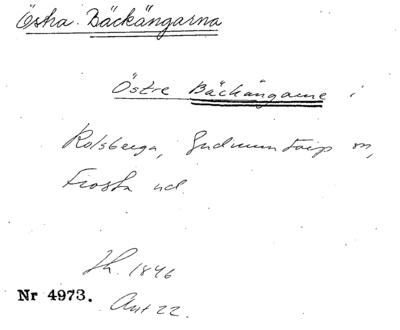 Östra Bäckängarna
Östre Bäckängarne i
Rolsberga, Gudmuntorp sn,
Frosta hd.
Jh. 1846
Nr 4973.
Akt 22.